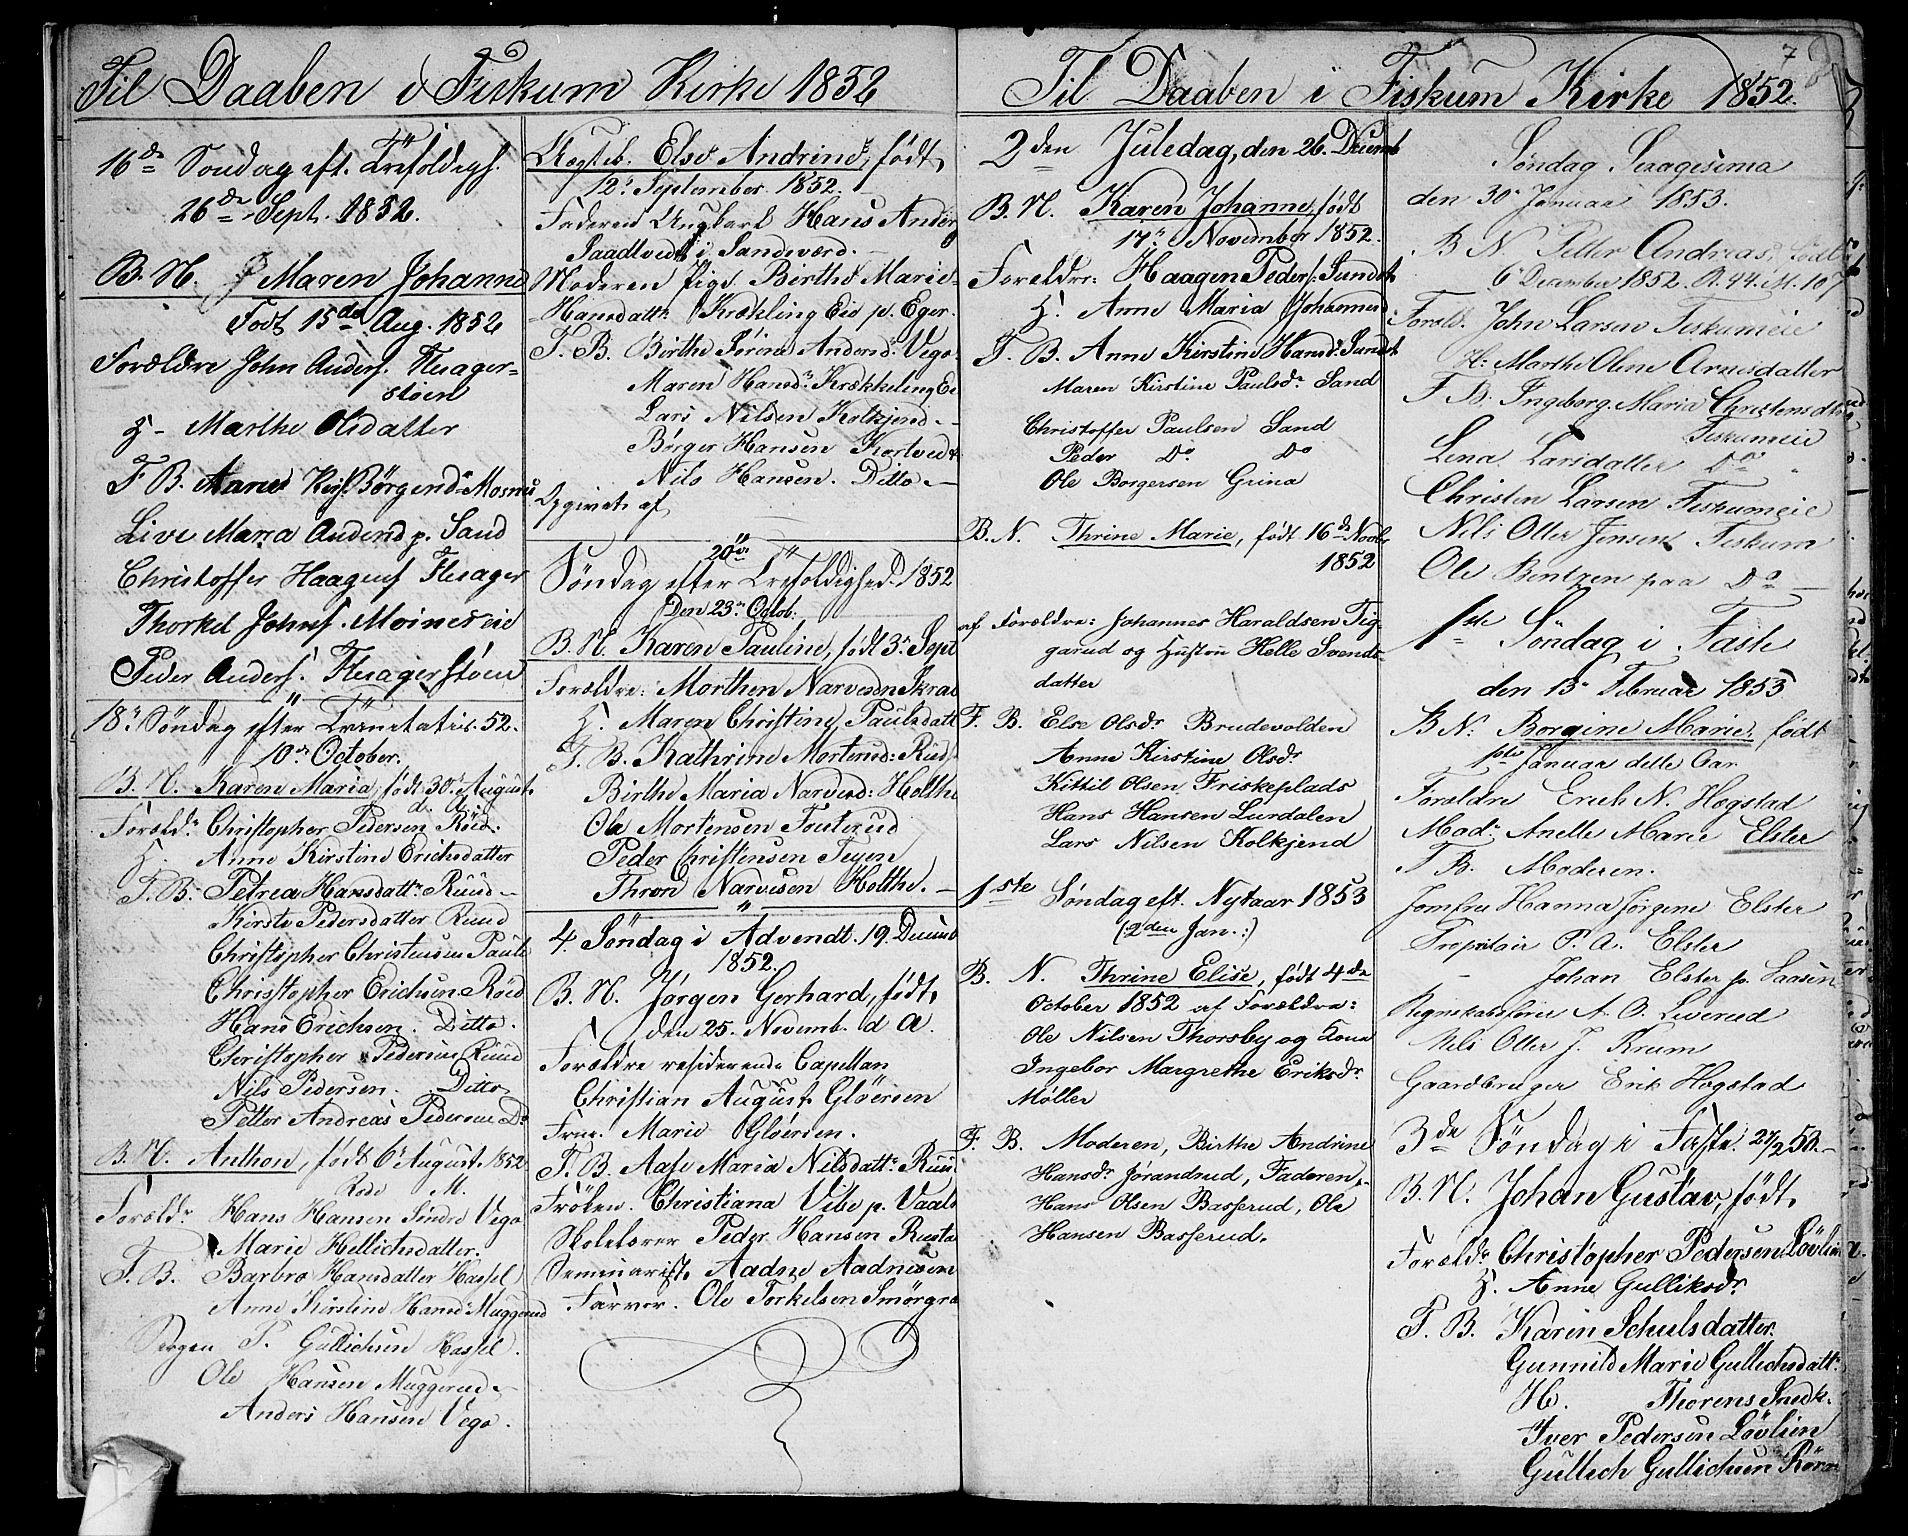 Til Daaben i Fiskum Kirke 1852
16de Sondag eft. Trefoldigh.
26de Sept. 1852.
B. N. Maren Johanne
Født 15de Aug. 1852
Forældre John Anders. Flesager-
støen
H - Marthe Olsdatter
F B. Børgersd.
Live Maria Andersd p. Sand
Christoffer Haagens Flesager
Thorkel Johns. Moinerseie
Peder Anders. Flesagerstøen
18de Søndag efter Trinetatis. 52.
10de October.
B. N. Karen Maria, født 30te August
d. A.
Foræld. Christopher Pedersen Røed.
H. Anne Kirstine Erichsdatter
F. B. Petrea Hansdattr Ruud
Kirste Pedersdatter Ruud
Christopher Christensen
Christopher Erichsen Røed
Hans Erichsen. Ditto.
Christopher Pedersen Ruud
Nils Pedersen. Ditto
Petter Andreas Pedersen Do
B. N. Anthon, født 6te August 1852
Foræld. Hans Hansen Sindre Vego
Marie Hellichsdatter.
F. B. Barbro Hansdatter Hassel
Anne Kirstine Hansd. Muggerud
Gullichsen Hassel.
Ole Hansen Muggerud
Anders Hansen Vego.
Uægteb. Else Andrine, født
12te September 1852.
Faderen Ungkarl Hans Anders
Saadtvedt i Sandsværd.
Moderen Pige Birthe Marie
Hansdattr. Krækling Eie p. Eger.
F. B. Birthe Sørine Andersd. Vego.
Maren Hansdr. Krækkeling Ei
Lars Nilsen Kolkjend
Børger Hansen Kortvedt
Nils Hansen. Ditto
Opgivet af
20de
Søndag efter Trefoldighed. 1852
Den 23de Octob.
B. N. Karen Pauline, født 3de Sept
Forældre: Morthen Narvesen
H. Maren Christine Paulsdatt
F. B. Kathrine Mortensd: Rud
Birthe Maria Narvesd: Holthe
Ole Mortensen Fosterud
Peder Christensen Teyen
Thron Narvesen Holthe.
4. Søndag i Advendt. 19. Decemb
1852.
B. N. Jørgen Gerhard, født
den 25. Novemb. d A.
Forældre residerende Capellan
Christian August Gløersen
Frue. Marie Gløersen.
F. B. Aase Maria Nilsdattr Ruu
Frøken. Christiana Vibe p. Vaals
Skolelærer Peder Hansen Rusta
Seminarist Aadne Aadnesen
Farver. Ole Torkelsen Smørgra
Til Daaben i Fiskum Kirke 1852.
7
2den Juledag, den 26. Decemb
B. N. Karen Johanne, født
17de November 1852.
Forældre: Haagen Peders. Sundet
H. Anne Maria Johannesd
F. B. Anne Kirstine Hansdr Sundet
Maren Kirstine Paulsdr Sand
Christoffer Paulsen Sand
Peder Do Do
Ole Borgersen Grina
B. N. Thrine Marie, født 16de Novbr
1852
af Forældre: Johannes Haraldsen Tig-
garud og Hustru Helle Svends-
datter
F. B. Else Olsdr Brudevolden
Anne Kirstine Olsdr
Kittil Olsen Friskeplads
Hans Hansen Lurdalen
Lars Nilsen Kolkjend
1ste Søndag eft. Nytaar 1853
(2den Jan.)
B. N. Thrine Elise, født 4de
October 1852 af Forældre:
Ole Nilsen Thorsby og Kone
Ingebor Margrethe Eriksdr
Møller
F. B. Moderen, Birthe Andrine
Hansdr Jørandrud, Faderen,
Hans Olsen Basserud, Ole
Hansen Basserud.
Søndag Sexagesima
den 30te Januar 1853.
B N Petter Andreas, født
6te December 1852. A. 44. M. 107
Foræld. John Larsen Fiskumeie
H. Marthe Olene Arnesdatter
F B. Ingeborg Maria Christensdtr
Fiskumeie
Lena Larsdatter Do
Christen Larsen Fiskumeie
Nils Otter Jensen Fiskum
Ole Bentzen paa Do
1ste Søndag i Faste
den 13de Februar 1853
B N. Borgine Marie, født
1ste Januar dette Aar
Forældre Erich N. Hogstad
Mad. Anette Marie Elster
F B. Moderen.
Jomfru Hanna Jørgine Elster
Propritair P. A. Elster
Johan Elster p. Saasen
Regnskabsfører A. O. Liverud
Nils Otter J. Krum
Gaardbruger Erik Hogstad
3de Søndag i Faste. 27/2 53.
B. N. Johan Gustav, født
Foræld. Christopher Pedersen Løvlien
H. Anne Gulliksdr
F. B. Karin Schulsdatter.
Gunnild Marie Gullichsdattr
H. Thorens Snedk.
Iver Pedersen Løvlien
Gullich Gullichsen